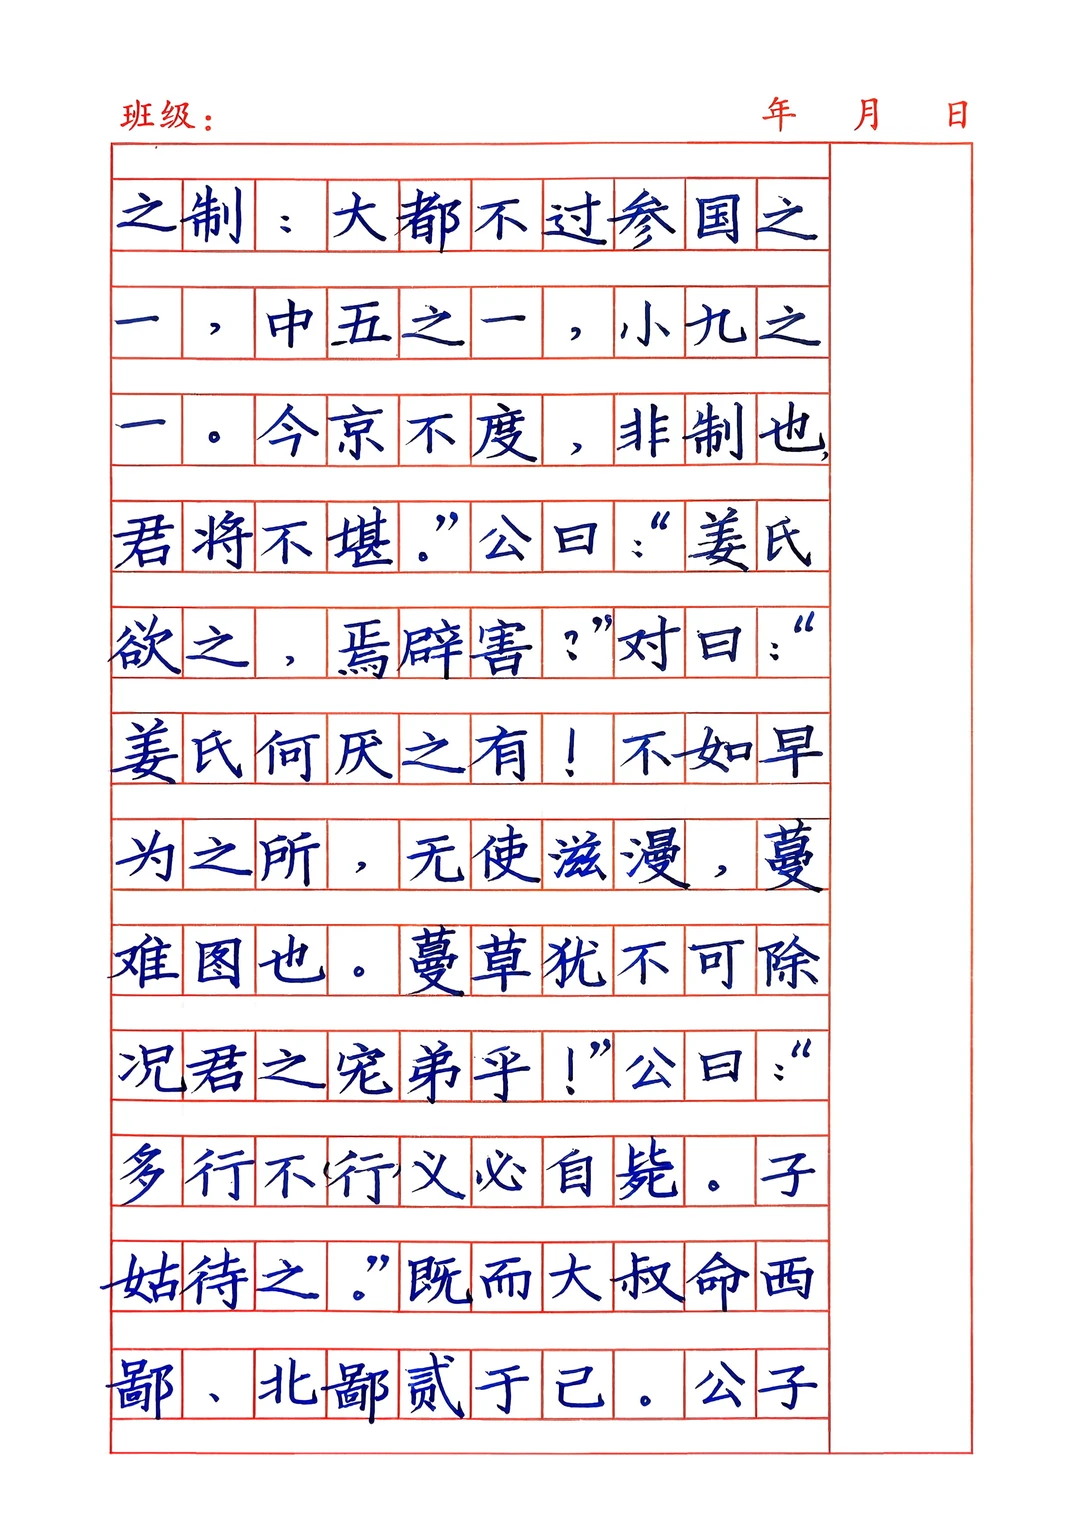 班级： 年 月 日
之制：大都不过参国之
一，中五之一，小九之
一。今京不度，非制也，
君将不堪。”公曰：“姜氏
欲之，焉辟害？”对曰：“
姜氏何厌之有！不如早
为之所，无使滋漫，蔓
难图也。蔓草犹不可除
况君之宠弟乎！”公曰：“
多行不（行）义必自毙。子
姑待之。”既而大叔命西
鄙、北鄙贰于己。公子